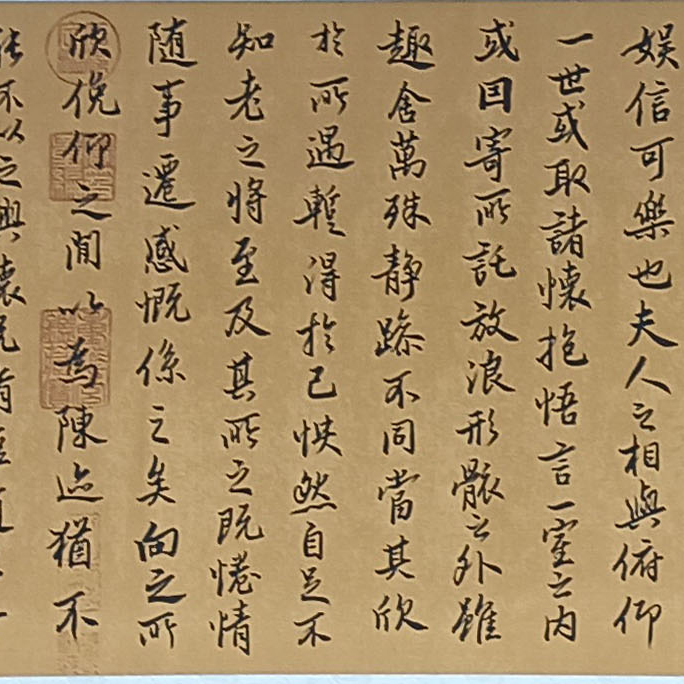 娱信可樂也夫人之相與俯仰
一世或取諸懷抱悟言一室之内
或因寄所託放浪形骸之外雖
趣舍萬殊静躁不同當其欣
於所遇蹔得於己怏然自足不
知老之將至及其所之既惓情
随事遷感慨係之矣向之所
欣俛仰之閒以為陳迹猶不
能不以之興懷